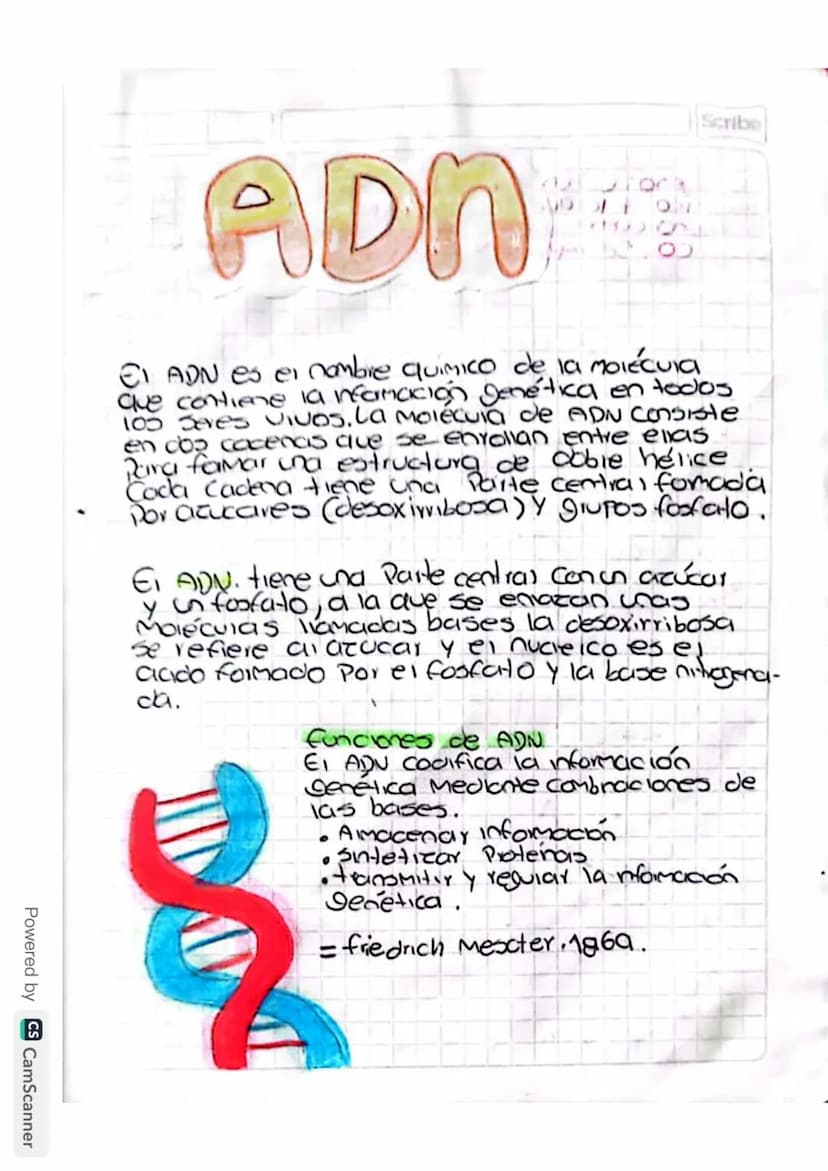 Scribe
ADN
El ADN es el nombre quimico de la molécula
que contiene la información genética en todos
los seres vivos. La molécula de ADN consiste
en dos cadenas que se enrollan entre ellas
Para formar una estructura de doble hélice
Cada cadena tiene una Parte central formada
por azucares (desoxirribosa) y grupos fosfato.
El ADN. tiene una Parte central con un azúcar
y un fosfato, a la que se enlazan unas
moléculas llamadas bases la desoxirribosa
se refiere al azucar y el nucleico es el
acido formado por el fosfato y la base nitrogena-
da.
funciones de ADN
El ADN codifica la información
genética mediante combinaciones de
las bases.
• Almacenar información
• sintetizar Proteinas
• transmitir y regular la información
genética.
= friedrich Mescter. 1869.
Powered by CS CamScanner